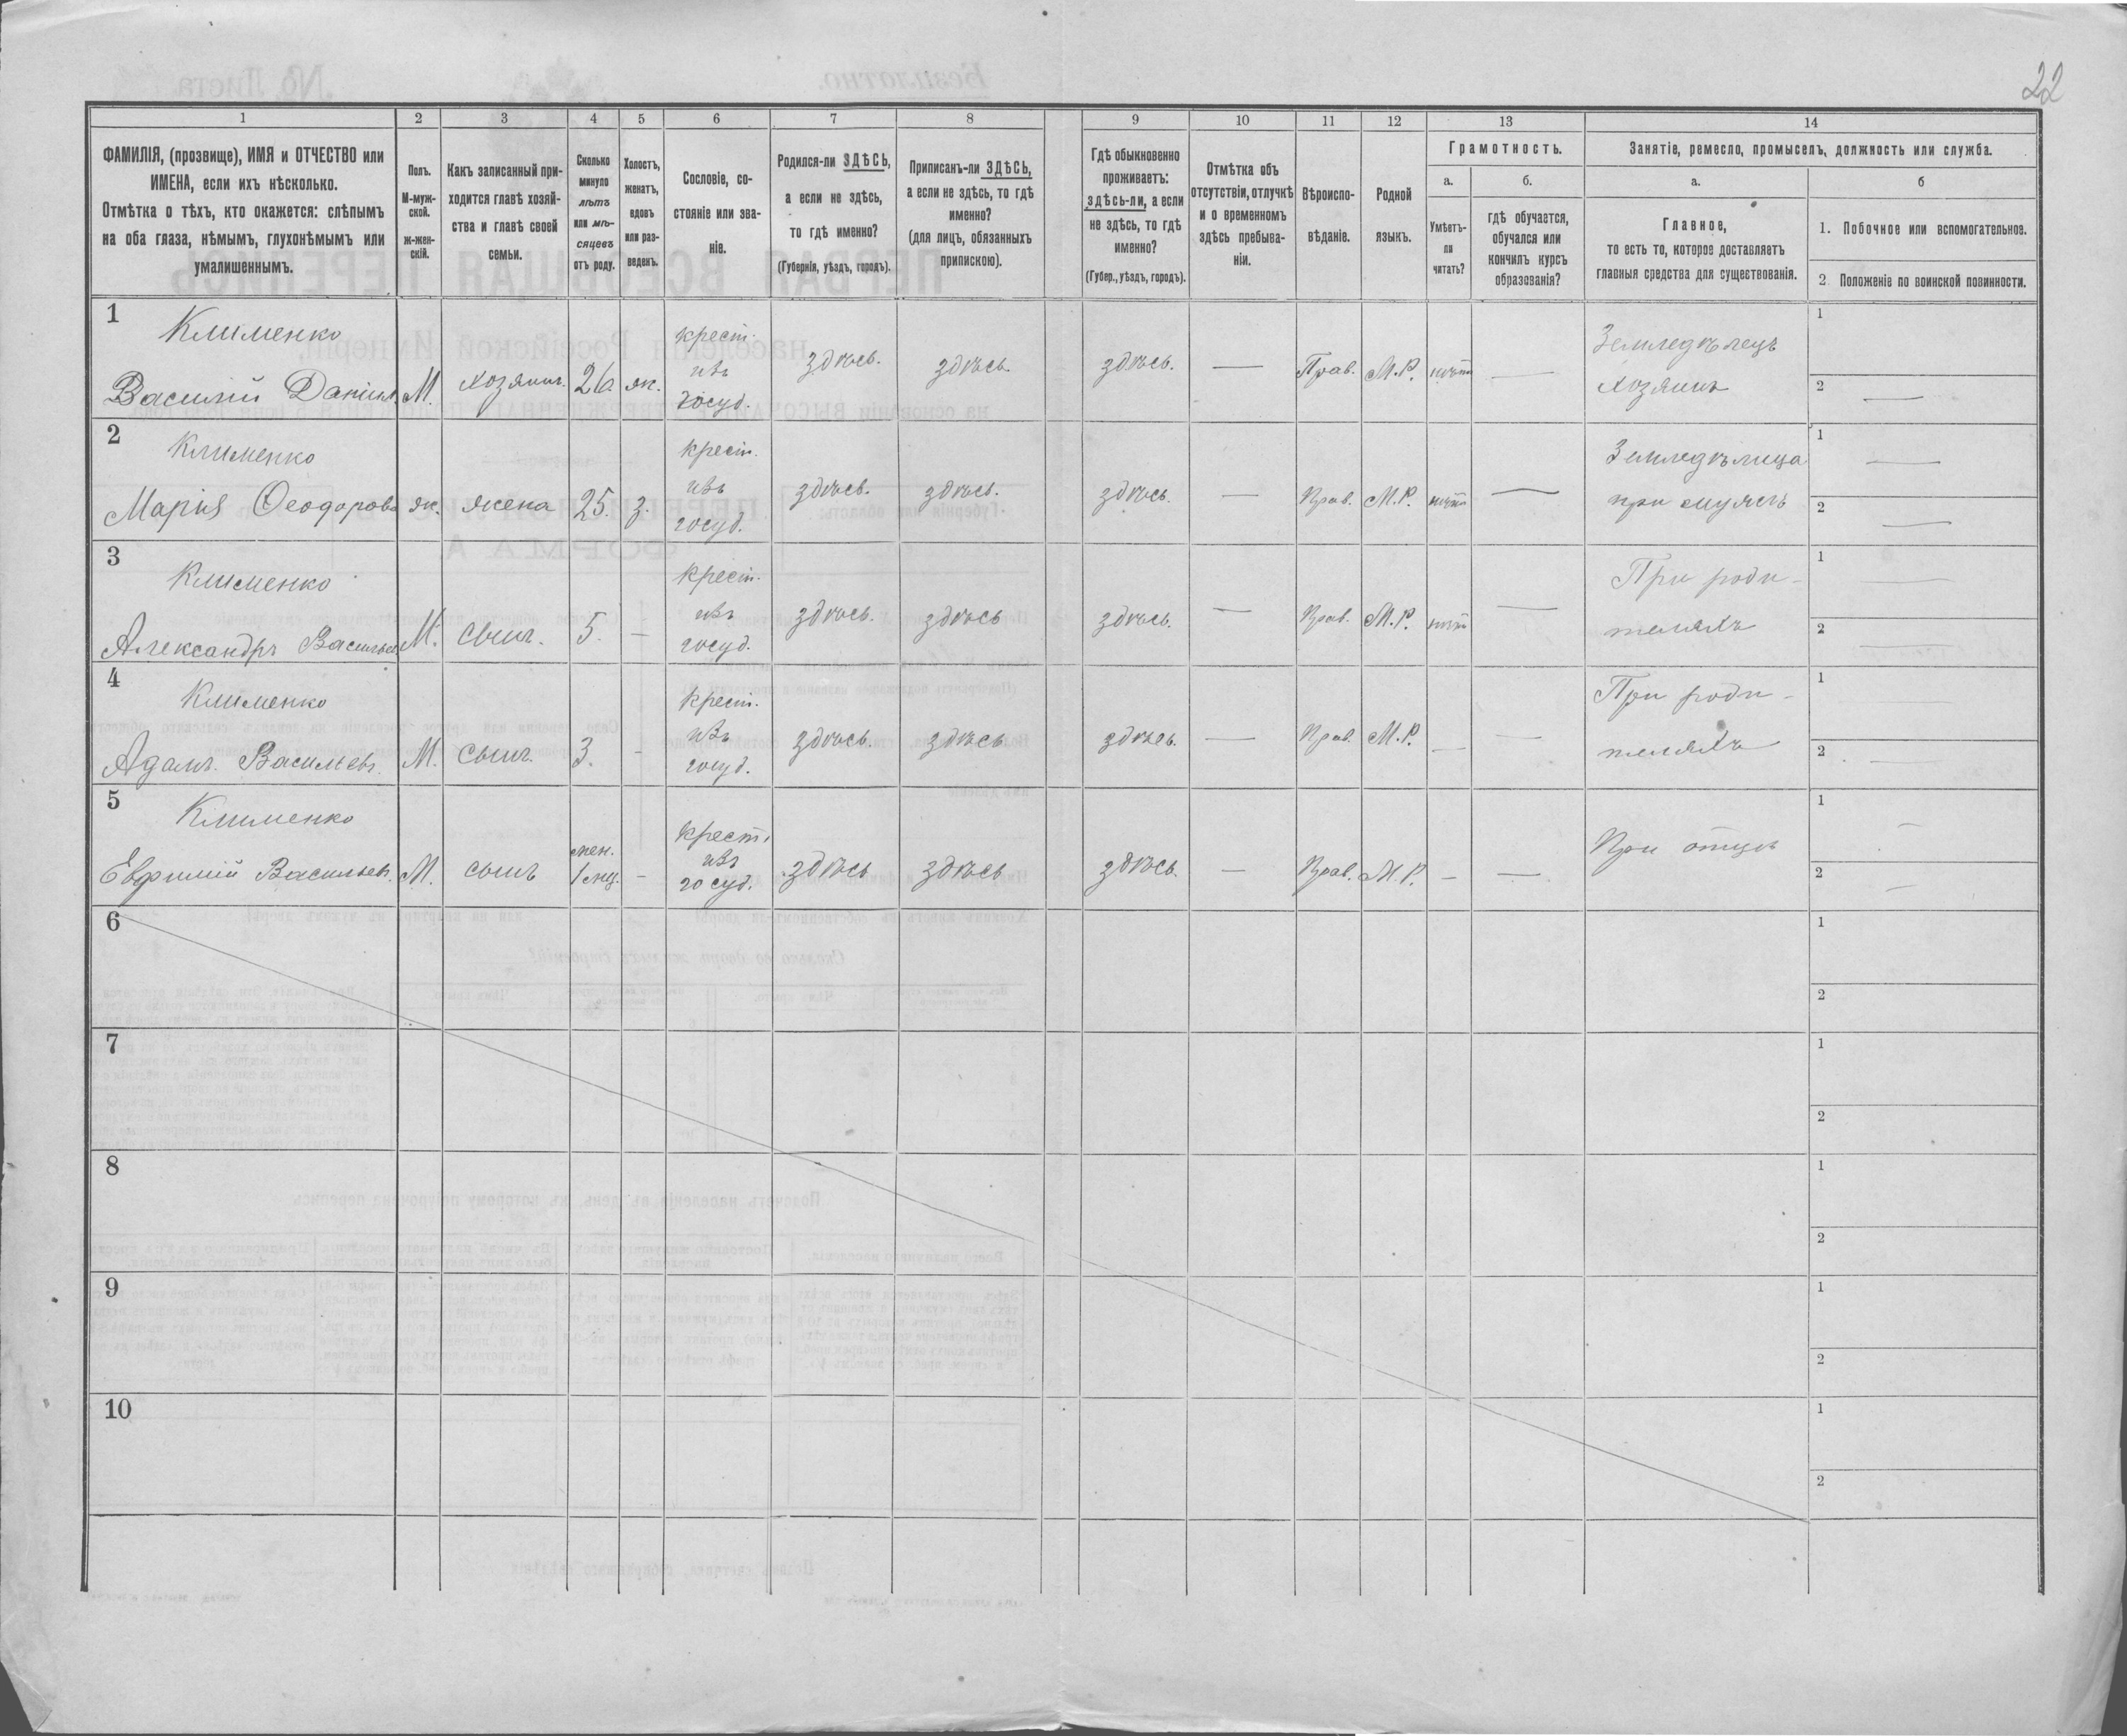 22
1 2 3 4 5 6 7 8 9 10 11 12 13 14
ФАМИЛІЯ, (прозвище), ИМЯ и ОТЧЕСТВО или
ИМЕНА, если ихъ нѣсколько.
Отмѣтка о тѣхъ, кто окажется: слѣпымъ
на оба глаза, нѣмымъ, глухонѣмымъ или
умалишеннымъ.
Полъ.
М-муж-
ской.
ж-жен-
скій.
Какъ записанный при-
ходится главѣ хозяй-
ства и главѣ своей
семьи.
Сколько
минуло
лѣтъ
или мѣ-
сяцевъ
отъ роду.
Холостъ,
женатъ,
вдовъ
или раз-
веденъ.
Сословіе, со-
стояніе или зва-
ніе.
Родился-ли ЗДѢСЬ,
а если не здѣсь,
то гдѣ именно?
(Губернія, уѣздъ, городъ).
Приписанъ-ли ЗДѢСЬ,
а если не здѣсь, то гдѣ
именно?
(для лицъ, обязанныхъ
припискою).
Гдѣ обыкновенно
проживаетъ:
здѣсь-ли, а если
не здѣсь, то гдѣ
именно?
(Губер., уѣздъ, городъ).
Отмѣтка объ
отсутствіи, отлучкѣ
и о временномъ
здѣсь пребыва-
ніи.
Вѣроиспо-
вѣданіе.
Родной
языкъ.
Грамотность.
а.
Умѣетъ-
ли
читать?
б.
гдѣ обучается,
обучался или
кончилъ курсъ
образованія?
Занятіе, ремесло, промыселъ, должность или служба.
а.
Главное,
то есть то, которое доставляетъ
главныя средства для существованія.
б
1. Побочное или вспомогательное.
2. Положеніе по воинской повинности.
1
Клименко
Василій Даніил.
М.
хозяинъ.
26
ж.
крест.
изъ
госуд.
здѣсь.
здѣсь
здѣсь.
—
Прав.
М.Р.
нѣтъ
—
Земледѣлецъ
хозяинъ
1
2 —
2
Клименко
Марія Ѳеодорова
ж.
жена
25.
з.
крест.
изъ
госуд.
здѣсь.
здѣсь.
здѣсь.
—
Прав.
М.Р.
нѣтъ
—
Земледѣлица
при мужѣ
1 —
2 —
3
Клименко
Александръ Васильев
М.
сынъ.
5.
—
крест.
изъ
госуд.
здѣсь.
здѣсь
здѣсь.
—
Прав.
М.Р.
нѣтъ
—
При роди-
теляхъ
1 —
2 —
4
Клименко
Адамъ Васильевъ.
М.
сынъ.
3.
-
крест.
изъ
госуд.
здѣсь.
здѣсь
здѣсь.
—
Прав.
М.Р.
—
—
При роди-
теляхъ
1 —
2 —
5
Клименко
Евфимій Васильев.
М.
сынъ
мен.
1 мц.
-
крест.
изъ
госуд.
здѣсь
здѣсь
здѣсь.
—
Прав.
М.Р.
-
—
При отцѣ
1 —
2 —
6
1
2
7
1
2
8
1
2
9
1
2
10
1
2